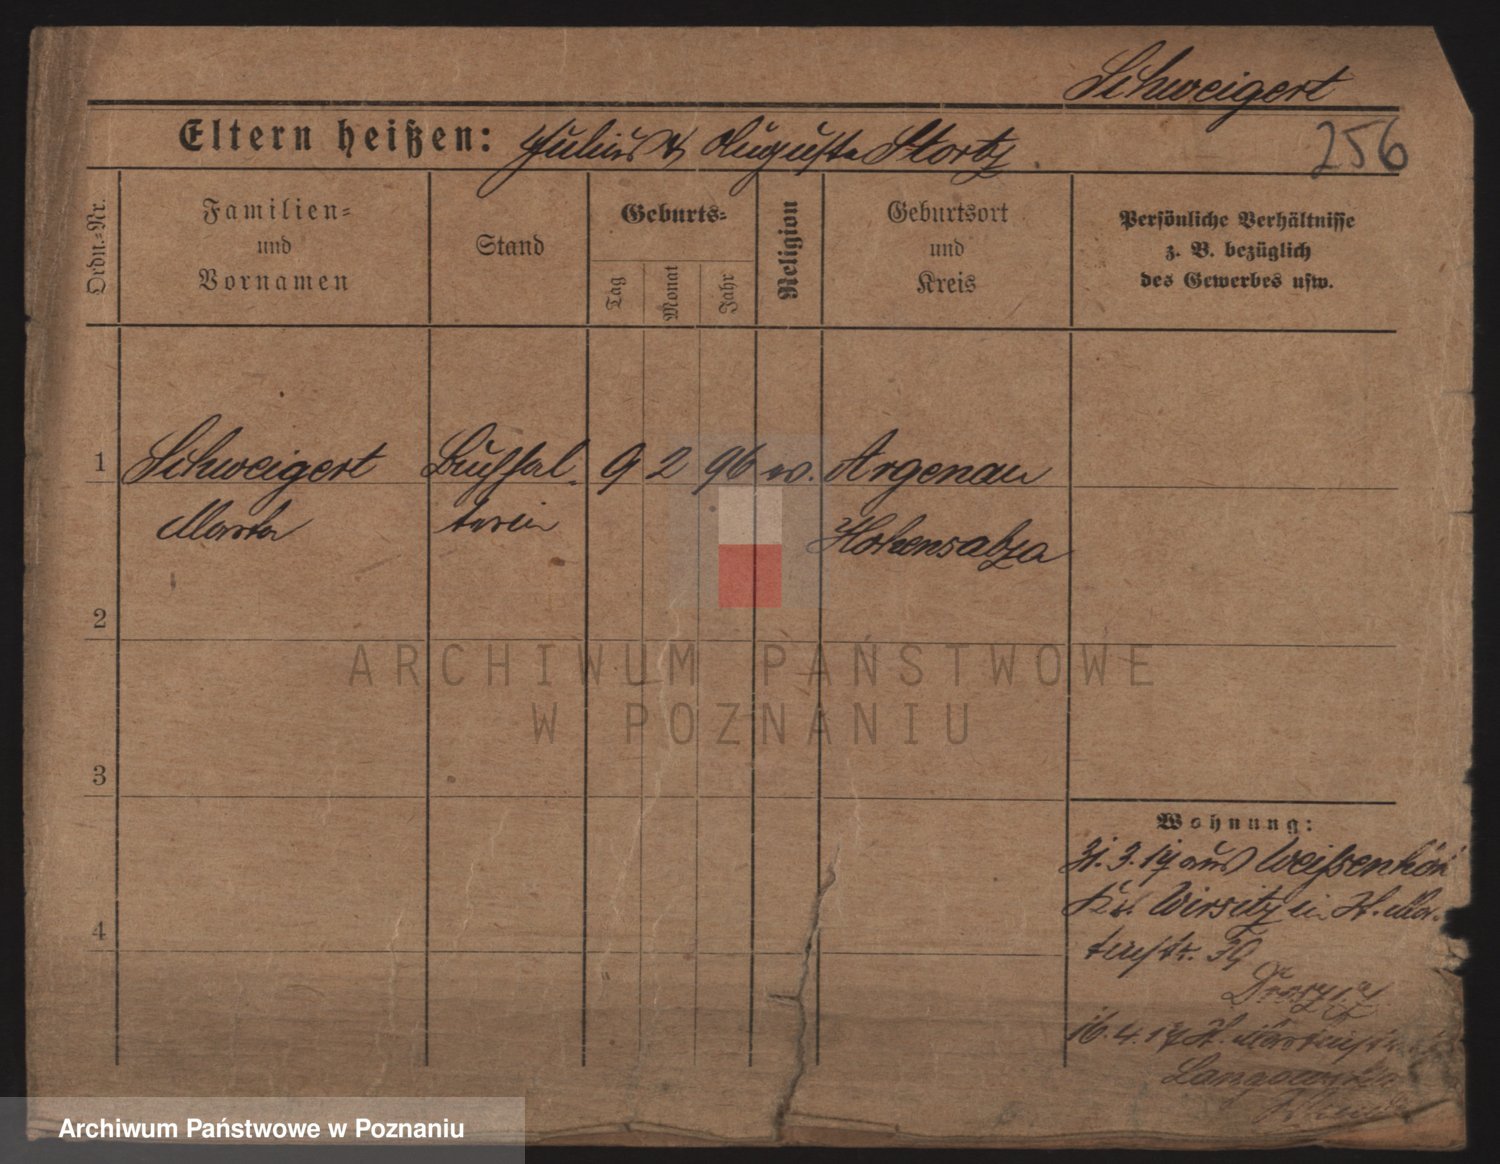 Schweigert
Eltern heißen: Julius & Auguste Stortz
256
Ordn.-Nr.
Familien-
und
Vornamen
Stand
Geburts-
Tag
Monat
Jahr
Religion
Geburtsort
und
Kreis
Persönliche Verhältnisse
z. B. bezüglich
des Gewerbes usw.
1 Schweigert Buchhal- 9 2 96 ev. Argenau
Marta terin Hohensalza
2
ARCHIWUM PAŃSTWOWE
W POZNANIU
3
Wohnung:
31.3.17 aus Weißenhöh
Krs. Wirsitz in St. Mar-
tinstr. 39
4
16.4.17 St. Martinstr.
Archiwum Państwowe w Poznaniu